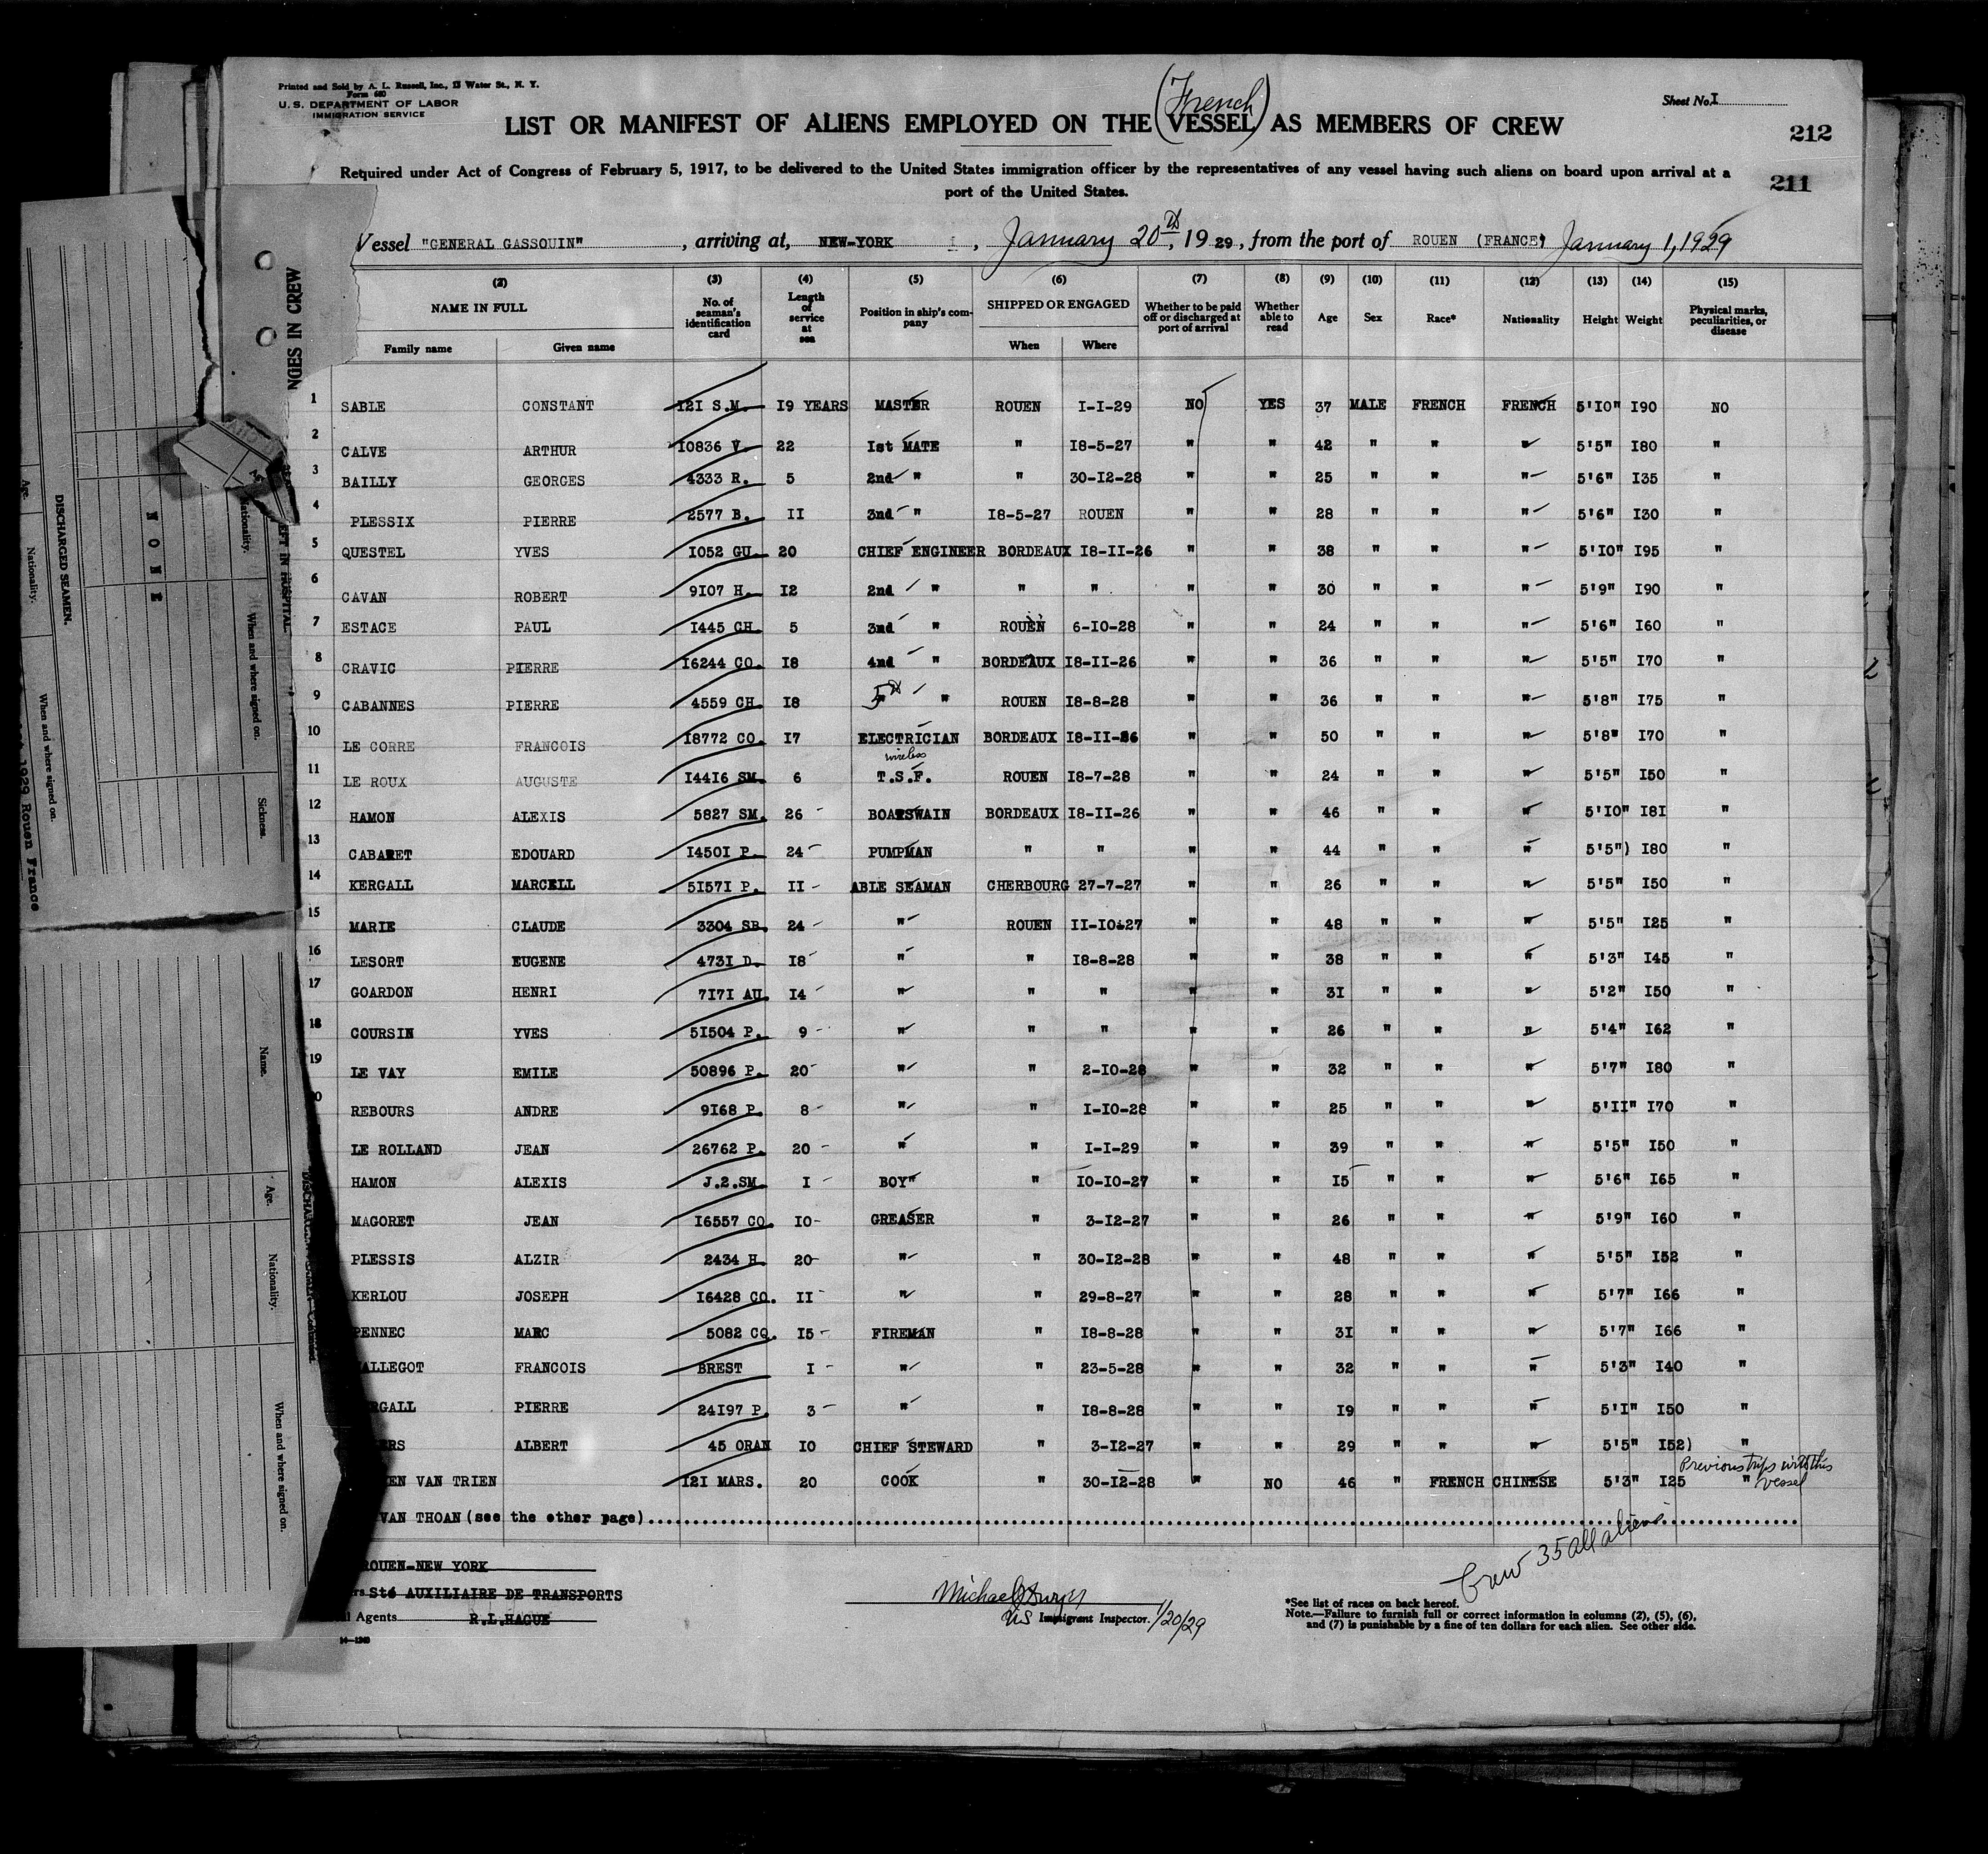 Printed and Sold by A. L. Russell, Inc., 13 Water St., N. Y.
Form 680
U. S. DEPARTMENT OF LABOR
IMMIGRATION SERVICE
Sheet No. I
(French)
LIST OR MANIFEST OF ALIENS EMPLOYED ON THE VESSEL AS MEMBERS OF CREW
212
Required under Act of Congress of February 5, 1917, to be delivered to the United States immigration officer by the representatives of any vessel having such aliens on board upon arrival at a
port of the United States.
211
Vessel "GENERAL GASSOUIN", arriving at, NEW-YORK, January 20th, 1929, from the port of ROUEN (FRANCE) January 1, 1929
(2) (3) (4) (5) (6) (7) (8) (9) (10) (11) (12) (13) (14) (15)
NAME IN FULL No. of seaman's identification card Length of service at sea Position in ship's company SHIPPED OR ENGAGED Whether to be paid off or discharged at port of arrival Whether able to read Age Sex Race* Nationality Height Weight Physical marks, peculiarities, or disease
Family name Given name When Where
1 SABLE CONSTANT I2I S.M. I9 YEARS MASTER ROUEN I-I-29 NO YES 37 MALE FRENCH FRENCH 5'IO" I90 NO
2 CALVE ARTHUR I0836 V. 22 Ist MATE " I8-5-27 " " 42 " " " 5'5" I80 "
3 BAILLY GEORGES 4333 R. 5 2nd " " 30-I2-28 " " 25 " " " 5'6" I35 "
4 PLESSIX PIERRE 2577 B. II 3nd " I8-5-27 ROUEN " " 28 " " " 5'6" I30 "
5 QUESTEL YVES I052 GU. 20 CHIEF ENGINEER BORDEAUX I8-II-26 " " 38 " " " 5'IO" I95 "
6 CAVAN ROBERT 9I07 H. I2 2nd " " " " " 30 " " " 5'9" I90 "
7 ESTACE PAUL I445 CH. 5 3nd " ROUEN 6-IO-28 " " 24 " " " 5'6" I60 "
8 CRAVIC PIERRE I6244 CO. I8 4nd " BORDEAUX I8-II-26 " " 36 " " " 5'5" I70 "
9 CABANNES PIERRE 4559 CH. I8 5th " ROUEN I8-8-28 " " 36 " " " 5'8" I75 "
10 LE CORRE FRANCOIS I8772 CO. I7 ELECTRICIAN BORDEAUX I8-II-26 " " 50 " " " 5'8" I70 "
wireless
11 LE ROUX AUGUSTE I44I6 SM. 6 T.S.F. ROUEN I8-7-28 " " 24 " " " 5'5" I50 "
12 HAMON ALEXIS 5827 SM. 26 BOATSWAIN BORDEAUX I8-II-26 " " 46 " " " 5'IO" I8I "
13 CABARET EDOUARD I450I P. 24 PUMPMAN " " " " 44 " " " 5'5") I80 "
14 KERGALL MARCELL 5I57I P. II ABLE SEAMAN CHERBOURG 27-7-27 " " 26 " " " 5'5" I50 "
15 MARIE CLAUDE 3304 SB. 24 " ROUEN II-IO-27 " " 48 " " " 5'5" I25 "
16 LESORT EUGENE 473I D. I8 " " I8-8-28 " " 38 " " " 5'3" I45 "
17 GOARDON HENRI 7I7I AU. I4 " " " " " 3I " " " 5'2" I50 "
18 COURSIN YVES 5I504 P. 9 " " " " " 26 " " " 5'4" I62 "
19 LE VAY EMILE 50896 P. 20 " " 2-IO-28 " " 32 " " " 5'7" I80 "
0 REBOURS ANDRE 9I68 P. 8 " " I-IO-28 " " 25 " " " 5'II" I70 "
LE ROLLAND JEAN 26762 P. 20 " " I-I-29 " " 39 " " " 5'5" I50 "
HAMON ALEXIS J.2.SM. I BOY" " IO-IO-27 " " I5 " " " 5'6" I65 "
MAGORET JEAN I6557 CO. IO GREASER " 3-I2-27 " " 26 " " " 5'9" I60 "
PLESSIS ALZIR 2434 H. 20 " " 30-I2-28 " " 48 " " " 5'5" I52 "
KERLOU JOSEPH I6428 CO. II " " 29-8-27 " " 28 " " " 5'7" I66 "
PENNEC MARC 5082 CO. I5 FIREMAN " I8-8-28 " " 3I " " " 5'7" I66 "
ALLEGOT FRANCOIS BREST I " " 23-5-28 " " 32 " " " 5'3" I40 "
RGALL PIERRE 24I97 P. 3 " " I8-8-28 " " I9 " " " 5'I" I50 "
ERS ALBERT 45 ORAN IO CHIEF STEWARD " 3-I2-27 " " 29 " " " 5'5" I52) "
Previous trips with this vessel
EN VAN TRIEN I2I MARS. 20 COOK " 30-I2-28 " NO 46 " FRENCH CHINESE 5'3" I25 "
VAN THOAN (see the other page)
Crew 35 all aliens
ROUEN-NEW YORK
rs Sté AUXILIAIRE DE TRANSPORTS
l Agents R.L.HAGUE
14—1240
Michael
US Immigrant Inspector. 1/20/29
*See list of races on back hereof.
Note.—Failure to furnish full or correct information in columns (2), (5), (6),
and (7) is punishable by a fine of ten dollars for each alien. See other side.
NGES IN CREW
EFT IN HOSPITAL
Nationality.
When and where signed on.
Sickness.
NONE
DISCHARGED SEAMEN.
Age.
Nationality.
When and where signed on.
1929 Rouen France
Name.
Age.
Nationality.
When and where signed on.